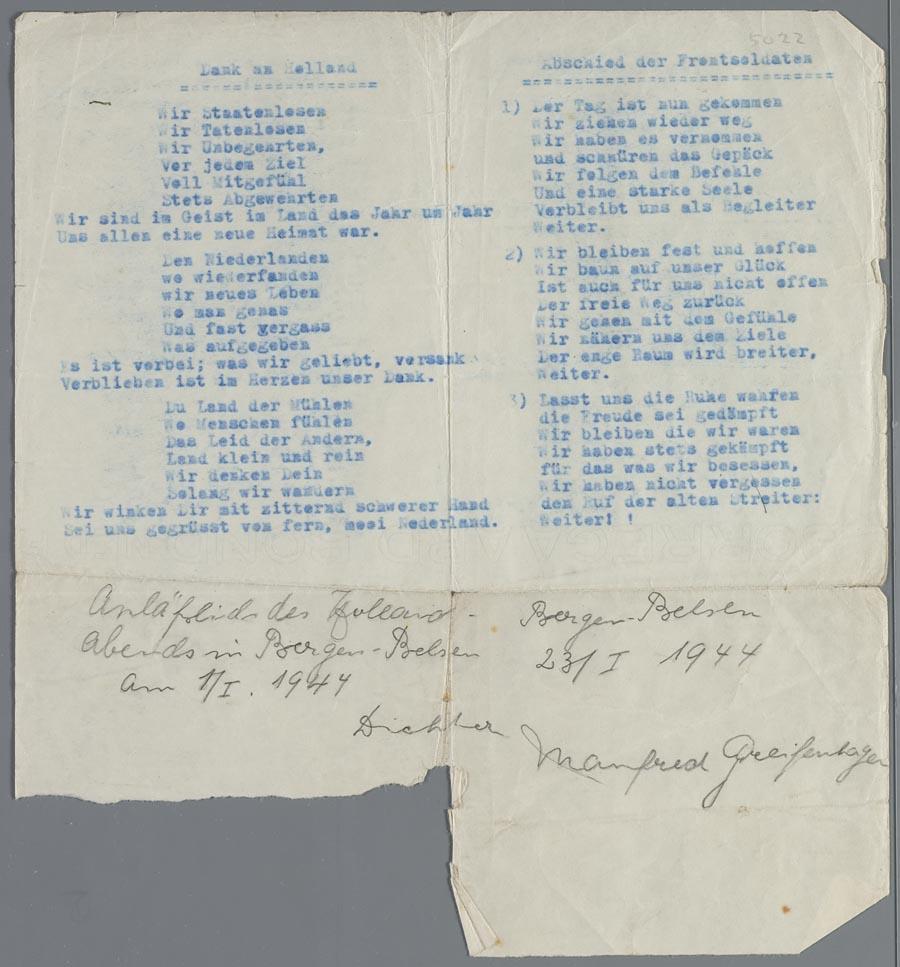 5022
Dank an Holland
Wir Staatenlosen
Wir Tatenlosen
Wir Unbegehrten,
Vor jedem Ziel
Voll Mitgefühl
Stets Abgewehrten
Wir sind im Geist im Land das Jahr um Jahr
Uns allen eine neue Heimat war.
Den Niederlanden
wo wiederfanden
wir neues Leben
Wo man genas
Und fast vergass
Was aufgegeben
Es ist vorbei; was wir geliebt, versank
Verblieben ist im Herzen unser Dank.
Du Land der Mühlen
Wo Menschen fühlen
Das Leid der Andern,
Land klein und rein
Wir denken Dein
Solang wir wandern
Wir winken Dir mit zitternd schwerer Hand
Sei uns gegrüsst von fern, mooi Nederland.
Anläßlich des Holland-
abends in Bergen-Belsen
am 1/I. 1944
Abschied der Frontsoldaten
1) Der Tag ist nun gekommen
Wir ziehen wieder weg
Wir haben es vernommen
und schnüren das Gepäck
Wir folgen dem Befehle
Und eine starke Seele
Verbleibt uns als Begleiter
Weiter.
2) Wir bleiben fest und hoffen
Wir baun auf unser Glück
Ist auch für uns nicht offen
Der freie Weg zurück
Wir gehen mit dem Gefühle
Wir nähern uns dem Ziele
Der enge Raum wird breiter,
Weiter.
3) Lasst uns die Ruhe wahren
die Freude sei gedämpft
Wir bleiben die wir waren
Wir haben stets gekämpft
für das was wir besessen,
Wir haben nicht vergessen
den Ruf der alten Streiter:
Weiter! !
Bergen-Belsen
23/I 1944
Dichter
Manfred Greifenhagen